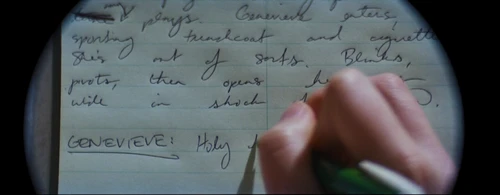 plays. Genevieve enters,
sporting trenchcoat and cigarette
She's out of sorts. Blinks,
pivots, then opens
wide in shock
GENEVIEVE: Holy